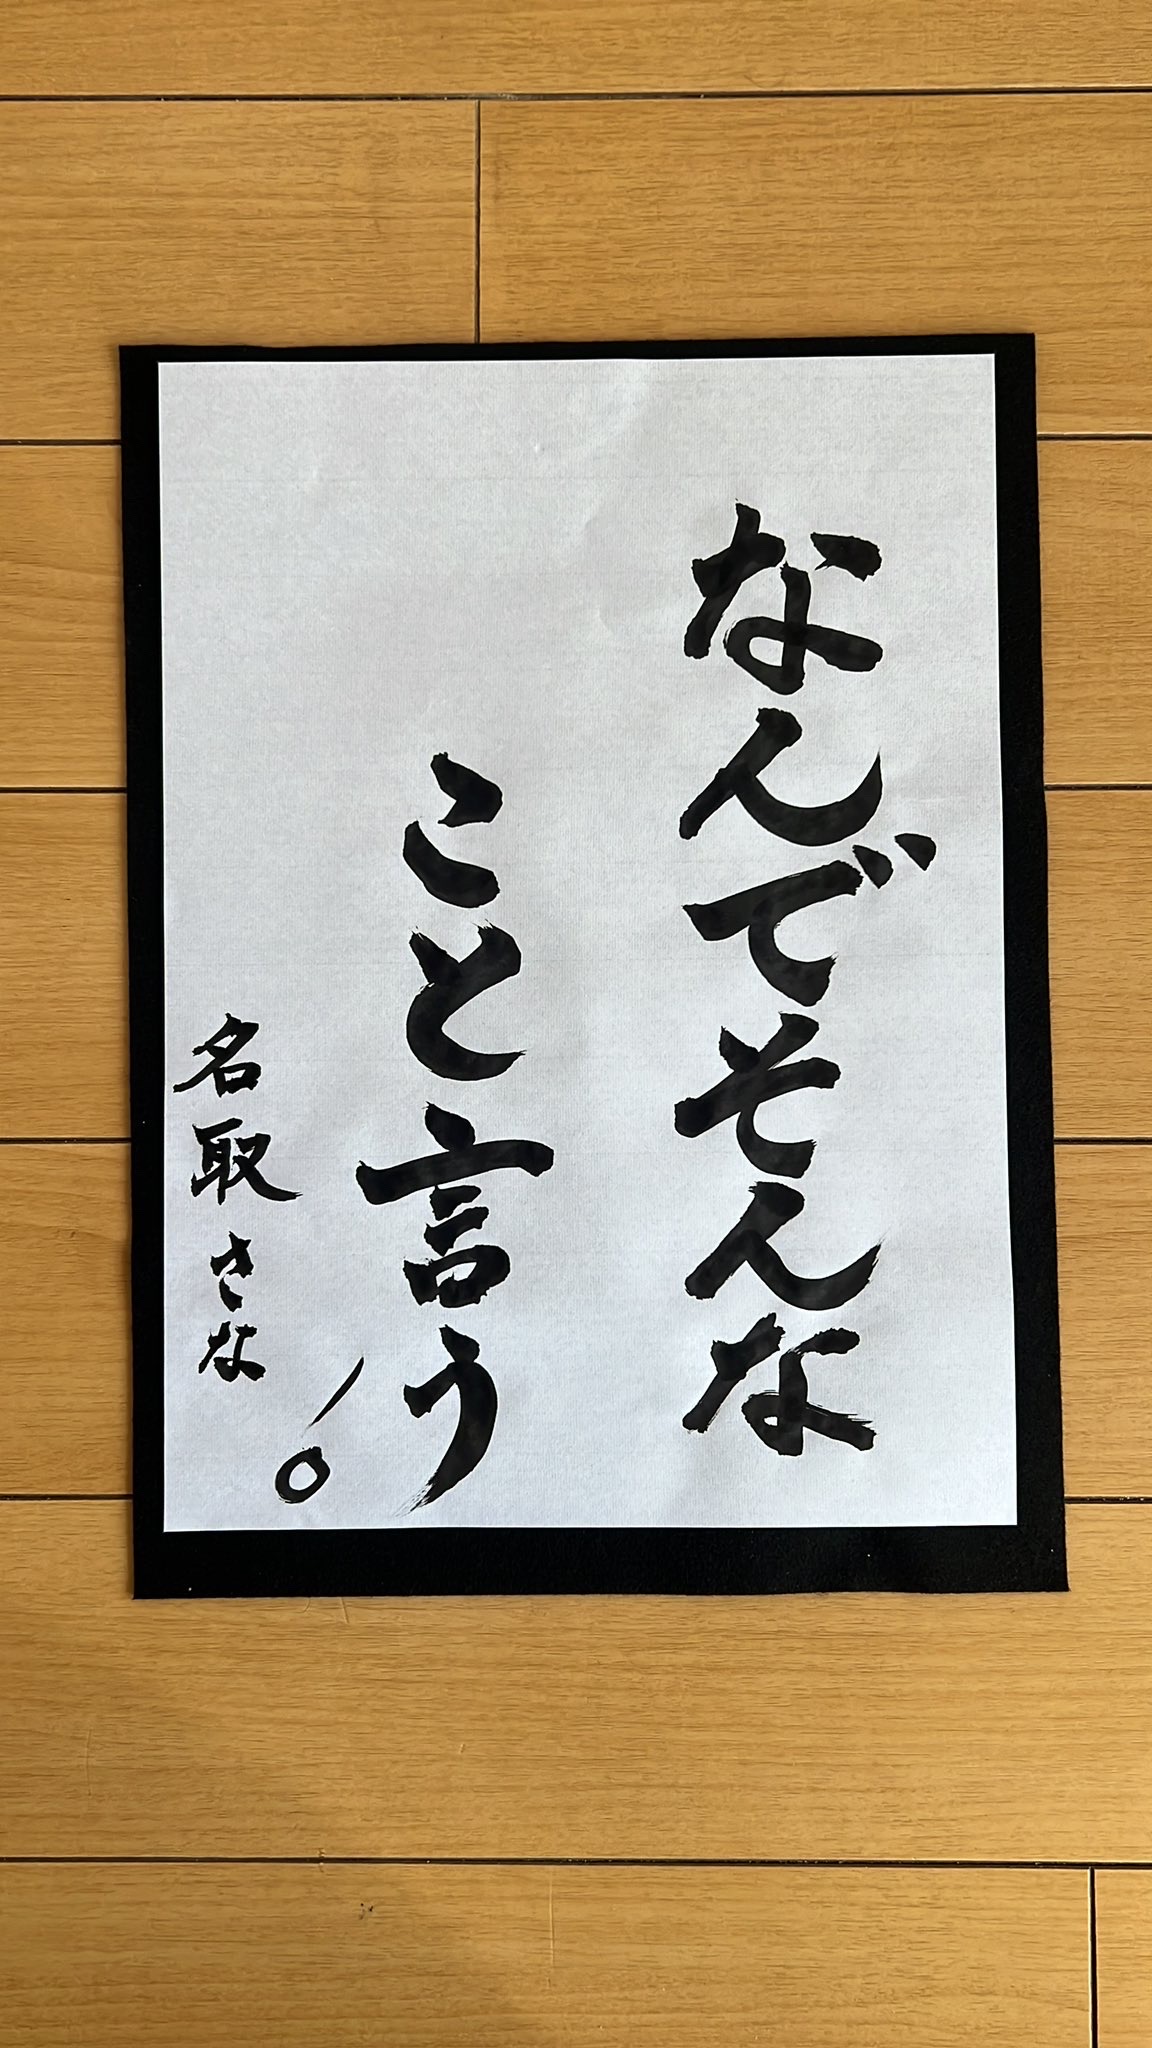 なんでそんな
こと言う！
名取さな